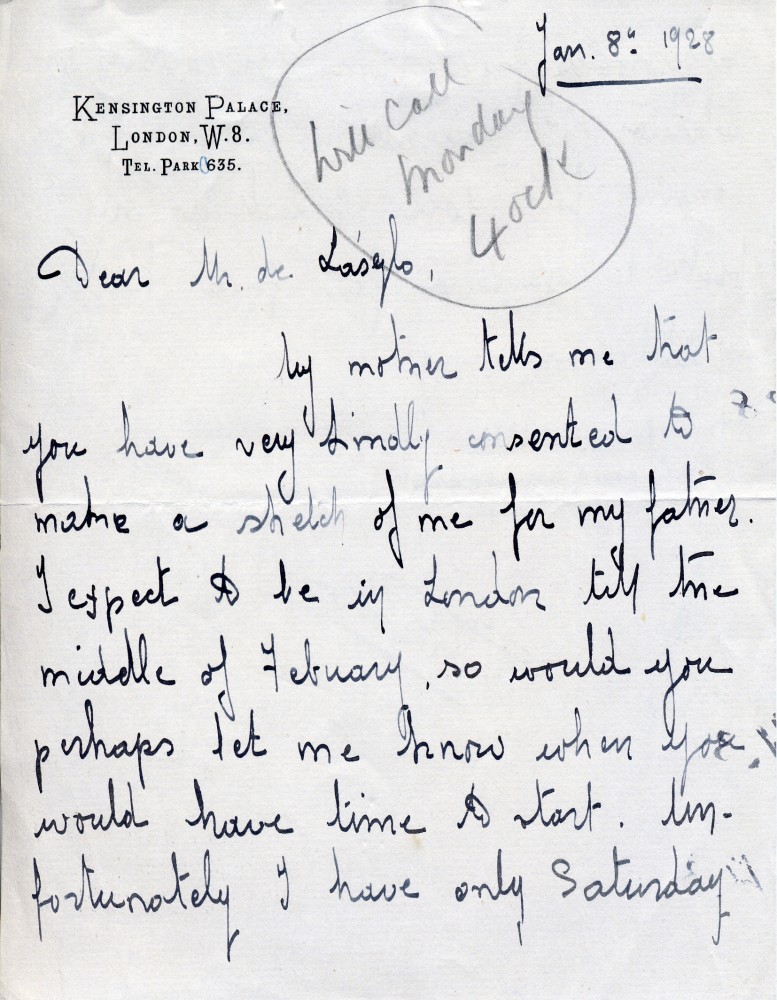 Jan. 8th 1928
KENSINGTON PALACE,
LONDON, W.8.
TEL. PARK 0635.
will call
monday
4 ock
Dear Mr. de László,
My mother tells me that
you have very kindly consented to
make a sketch of me for my father.
I expect to be in London till the
middle of Febuary, so would you
perhaps let me know when you
would have time to start. Un-
fortunately I have only Saturday